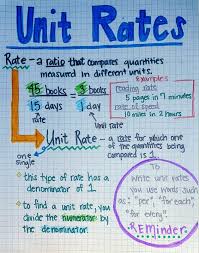 Unit Rates
Rate - a ratio that compares quantities
measured in different units.
45 books = 3 books
15 days 1 day
rate
unit rate
Examples
reading rate
5 pages in 7 minutes
rate of speed
10 miles in 2 hours
Unit Rate - a rate for which one
of the quantities
being compared is 1.
one
single
this type of rate has a
denominator of 1.
to find a unit rate, you
divide the numerator by
the denominator.
To
write unit rates
you use words such
as: "per", "for each",
"for every".
REMINDER